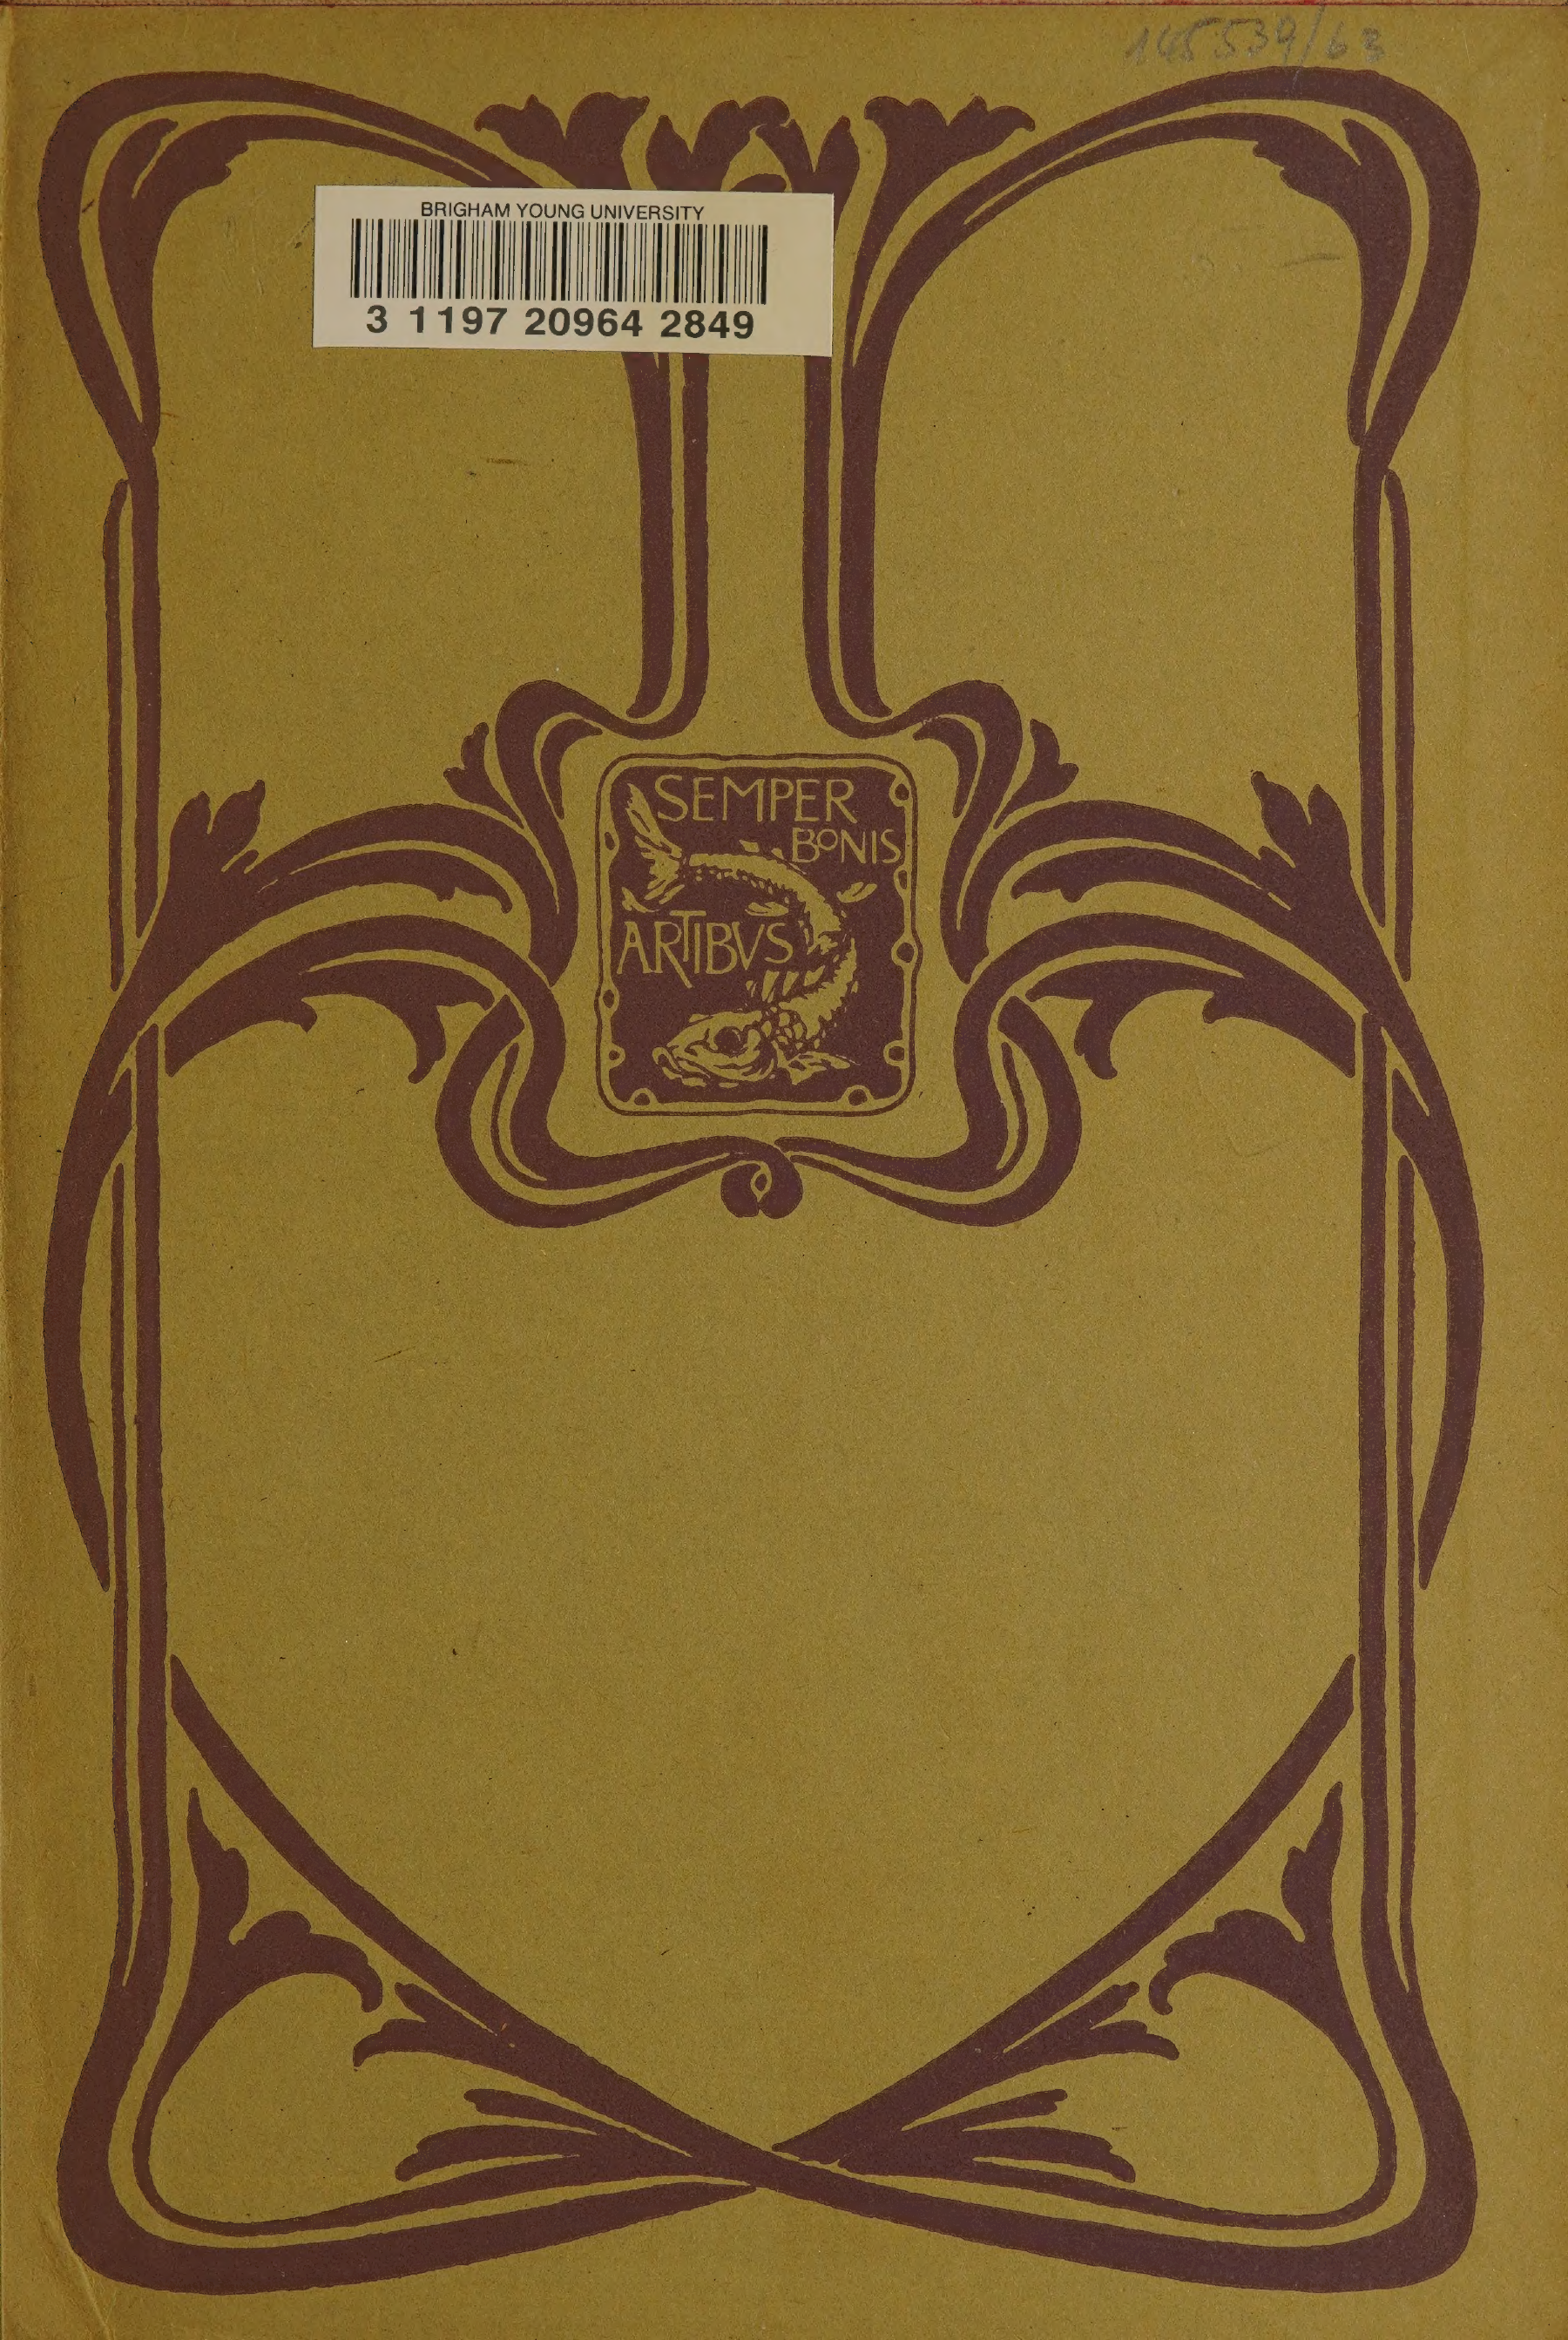 145539/63
BRIGHAM YOUNG UNIVERSITY
3 1197 20964 2849
SEMPER
BONIS
ARTIBVS